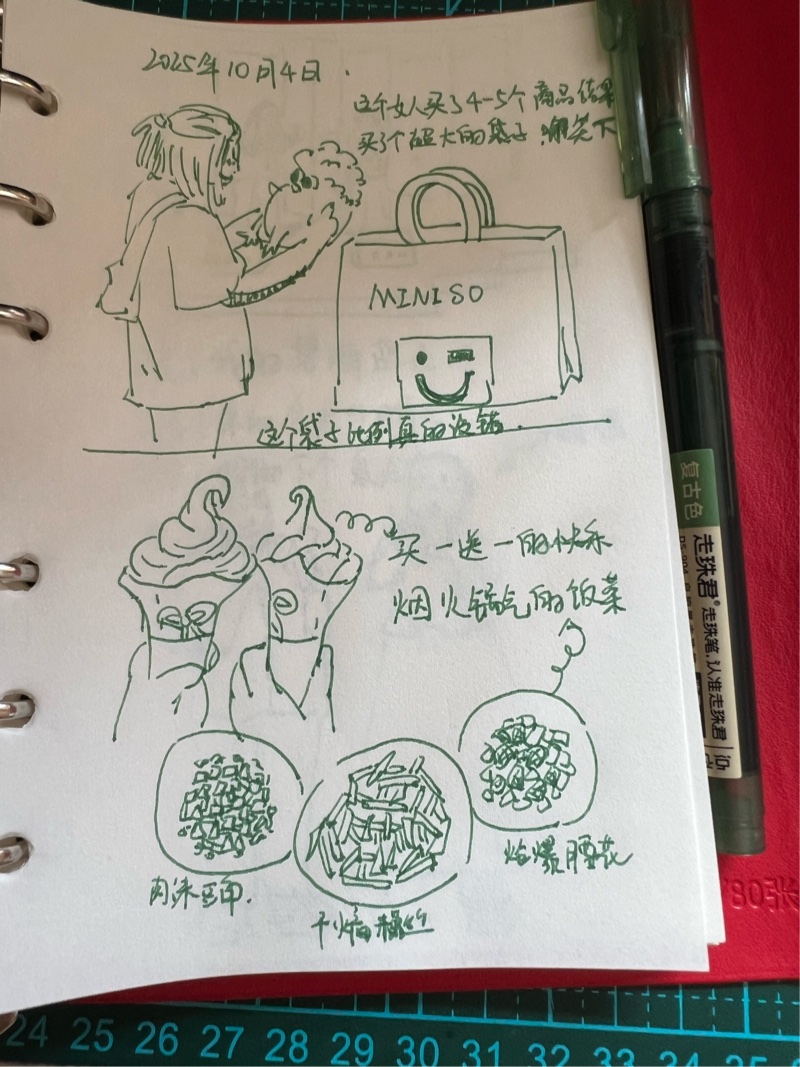 2025年10月4日.
这个女人买了4-5个商品结果
买了个超大的袋子,爆笑下
MINISO
这个袋子比例真的没错.
买一送一的快乐
烟火锅气的饭菜
肉沫豆角.
干煸
爆腰花
复古色
走珠君® 走珠笔,认准走珠君
80张
24 25 26 27 28 29 30 31 32 33 34 25